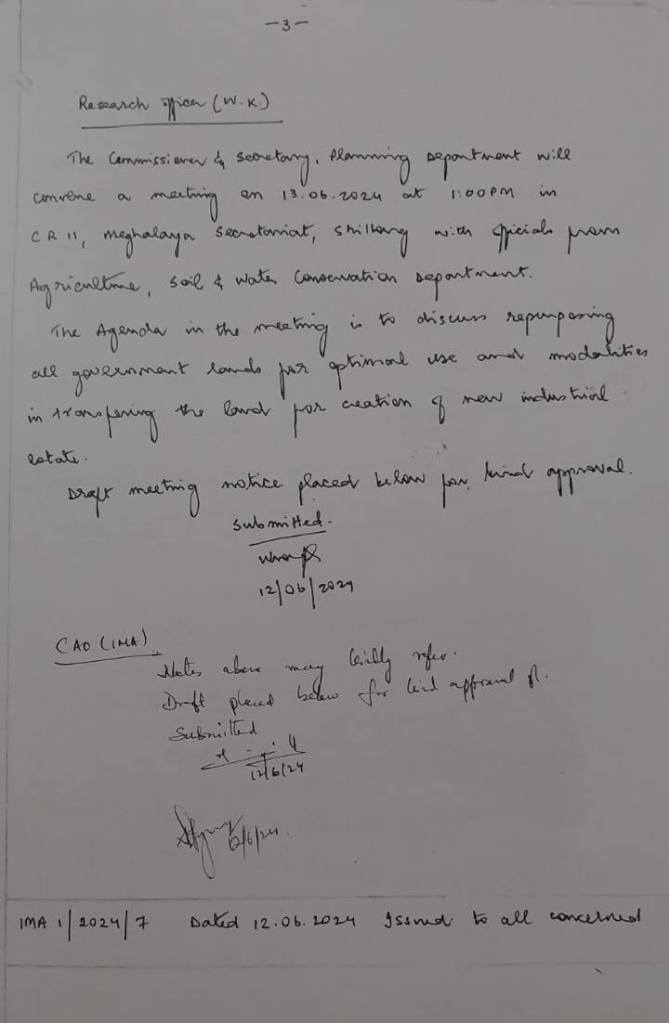 -3-
Research Officer (W.K.)
The Commissioner & Secretary, Planning Department will
convene a meeting on 13.06.2024 at 1:00PM in
CR 11, Meghalaya Secretariat, Shillong with officials from
Agriculture, Soil & Water Conservation Department.
The Agenda in the meeting is to discuss repurposing
all government lands for optimal use and modalities
in transfering the land for creation of new industrial
estate.
Draft meeting notice placed below for kind approval.
Submitted.
12/06/2024
CAO (IMA)
Notes above may kindly refer.
Draft placed below for kind approval pl.
Submitted
12/6/24
12/6/24.
IMA 1/2024/7 Dated 12.06.2024 Issued to all concerned